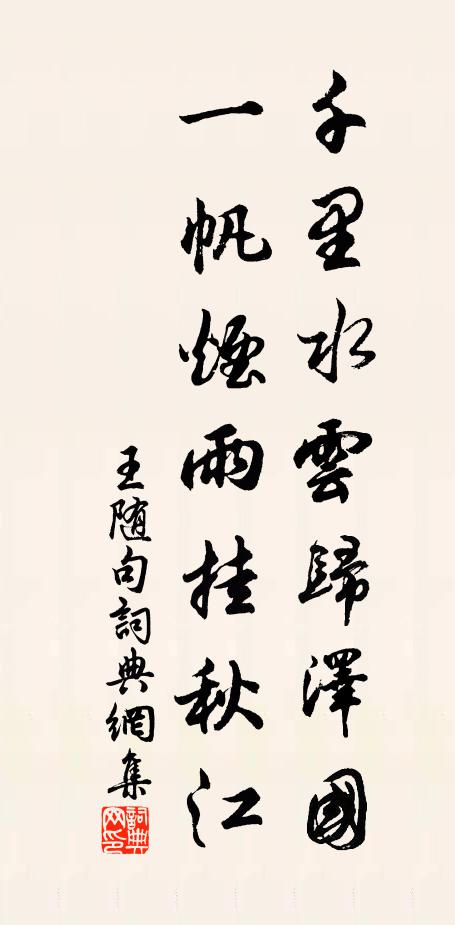 千里水雲歸澤國
一帆煙雨挂秋江
王随句詞典網集
詞典网印